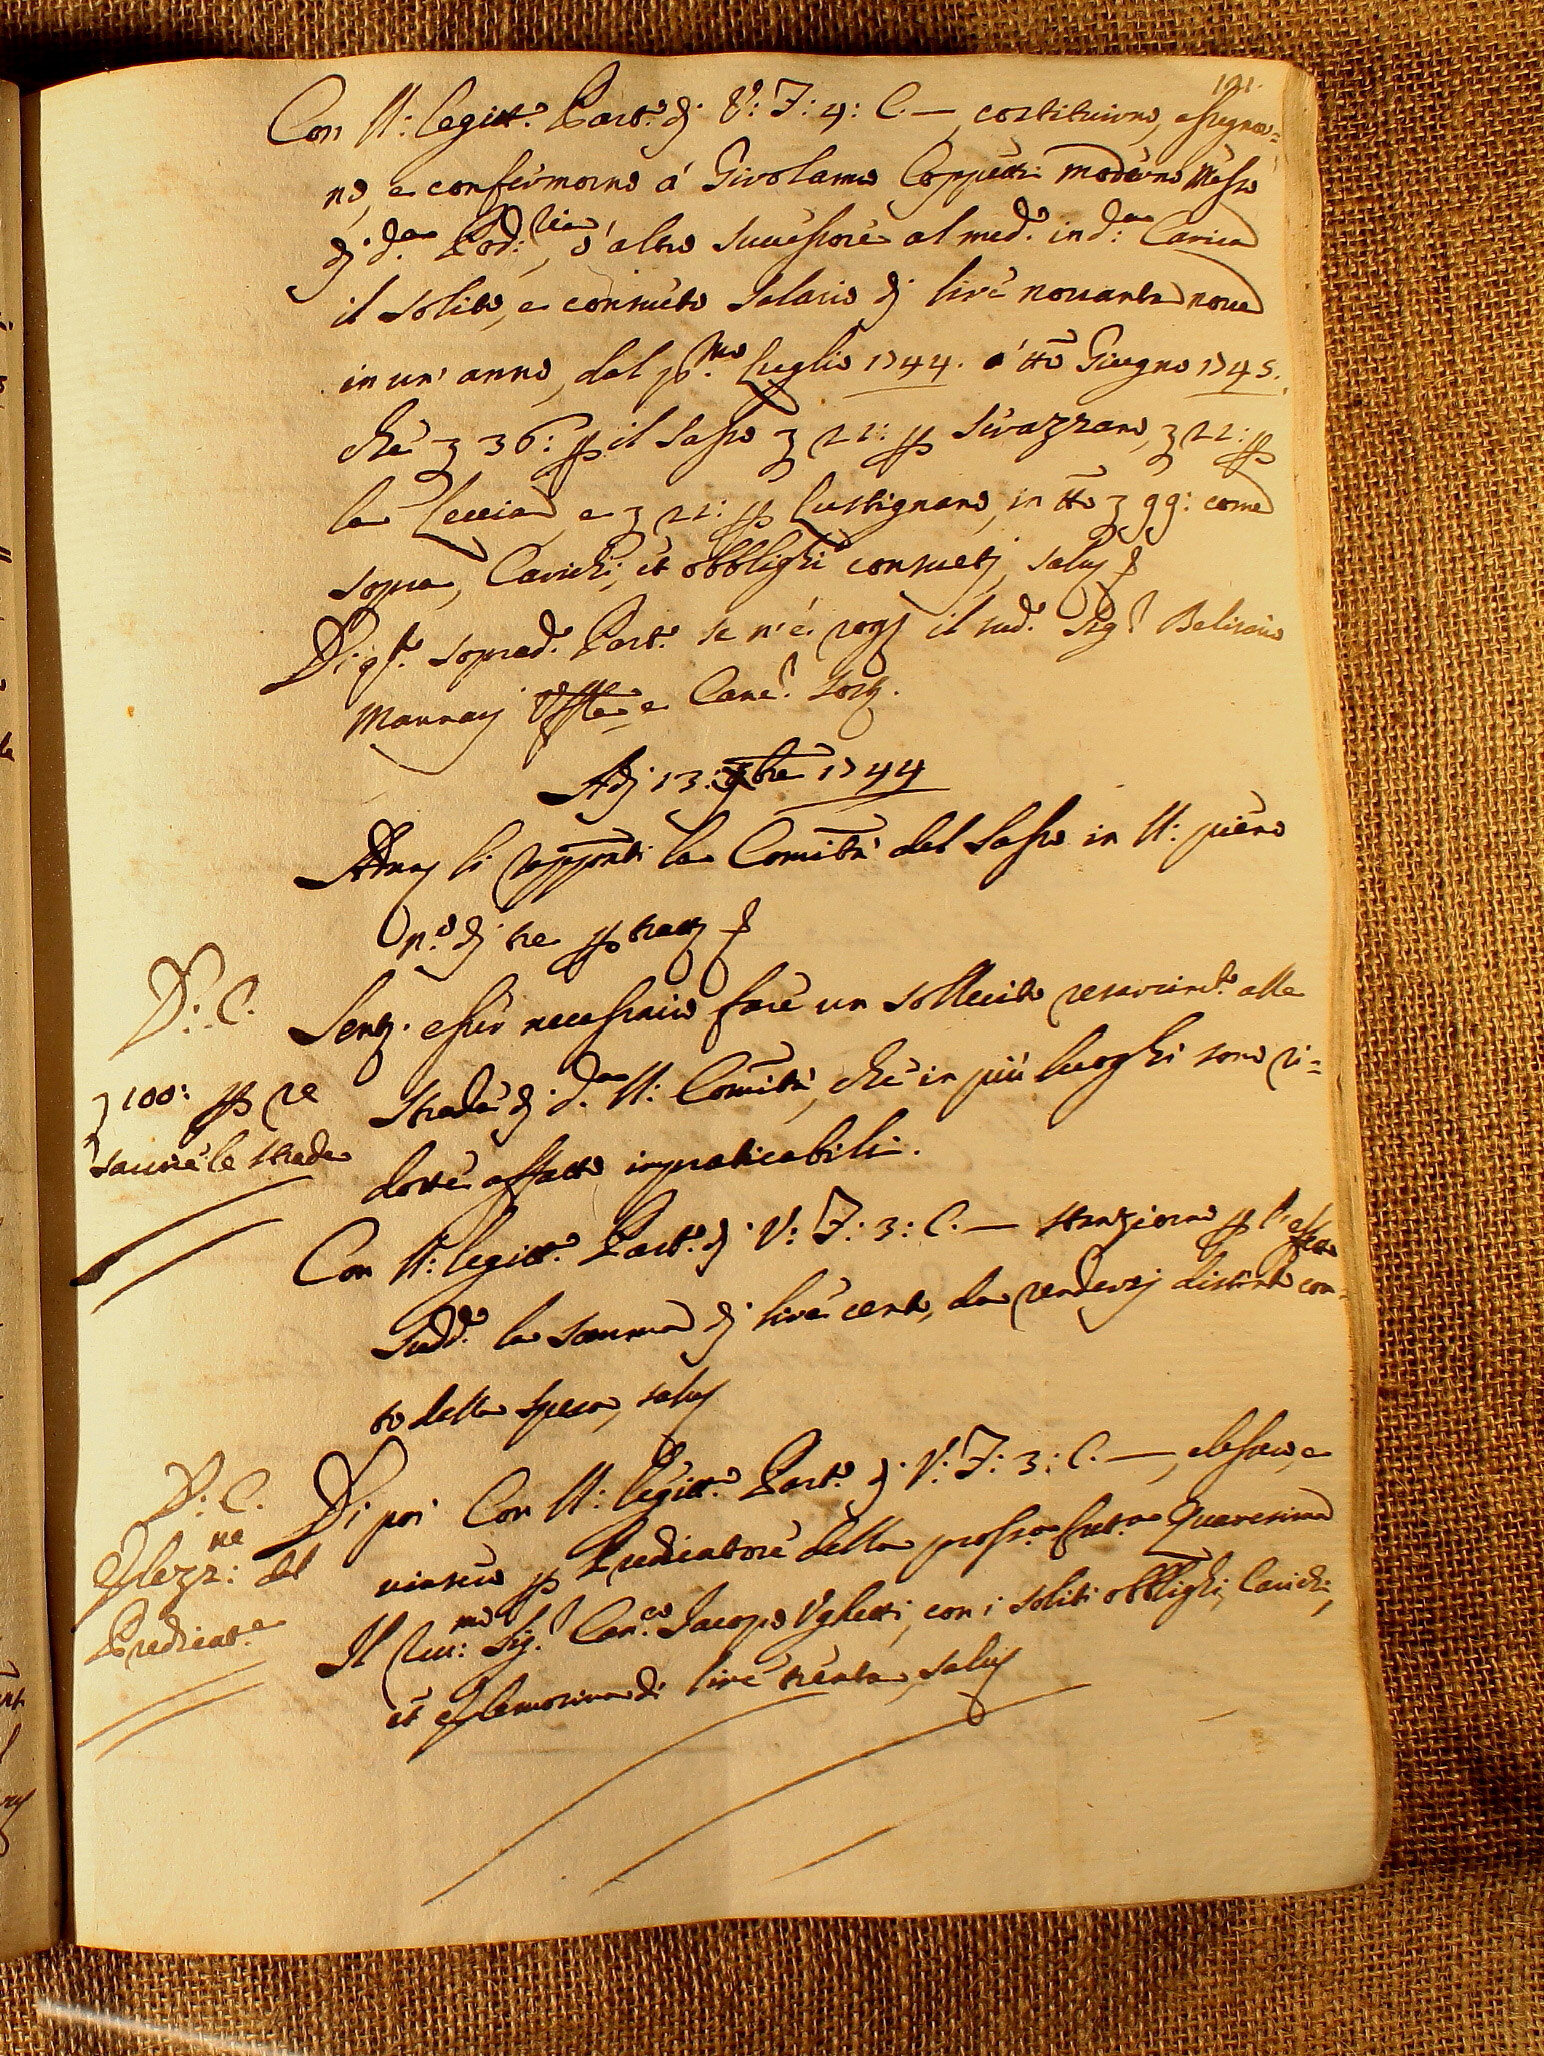 191.
Con ll: legitt.o Part.o di V: F: 4: C. —, costituirno, assegnor=
no, e confermorno à Girolamo Coppetti moderno Messo
di d.a Pod:ria, ò altro successore al med.o in d:a Carica
il solito, e consueto salario di lire novanta nove
in un' anno, dal p.mo Luglio 1744. à tto Giugno 1745.
che £ 36: p il Sasso £ 21: p Serazzano, £ 21: p
la Leccia, e £ 21: p Lustignano, in tto £ 99: come
sopra, Carichi, et obblighi consueti, salvi
Di q.to soprad.o Part.o se n'è rog.o il sud.o Sig.r Belisario
Mannaj Uff.le e Canc.re Sost.
Adj 13: 9bre 1744
Adun.ti li rapp̃nti la Comitã del Sasso in ll: pieno
n.o di tre p tratt
D: C. Sent. esser necessario fare un sollecito resarcim.to alle
£ 100: p re
sarcire le strade
strade di d.a ll: Comitã, che in più luoghi sono ri=
dotte affatto impraticabili.
Con ll: legitt.o Part.o di V: F: 3: C. — stanziorno p l'effetto
Sudd.o la somma di lire cento, da rendersi distinto con=
to della spesa, salvi
D: C. Di poi Con ll: legitt.o Part.o di V: F: 3: C. —, elessero, e
Elezz:ne del
Predicat.e
vinsero p Predicatore della pross.a fut.a Quaresima
Il Rev:mo Sig.r Can.co Jacopo Ughetti, con i soliti obblighi, Carichi,
et Elemosina di lire trenta, salvi